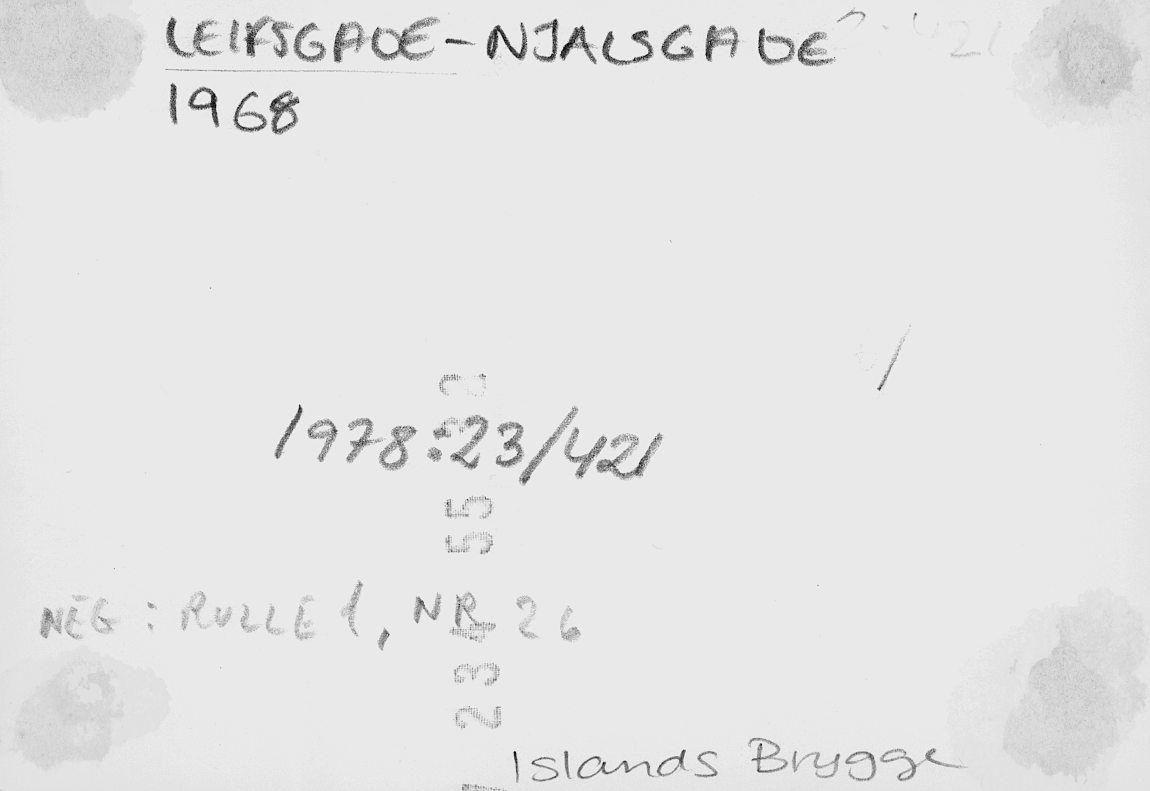 LEIFSGADE-NJALSGADE
1968
1978:23/421
NEG: RULLE 1, NR 26
Islands Brygge